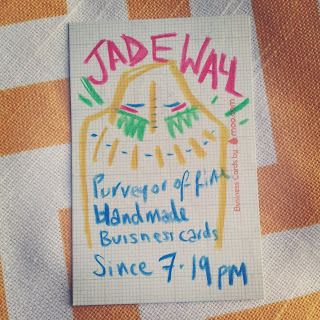 JADEWAY
Purveyor of fine
Handmade
Buisness cards
Since 7.19 pm
Business Cards by moo.com